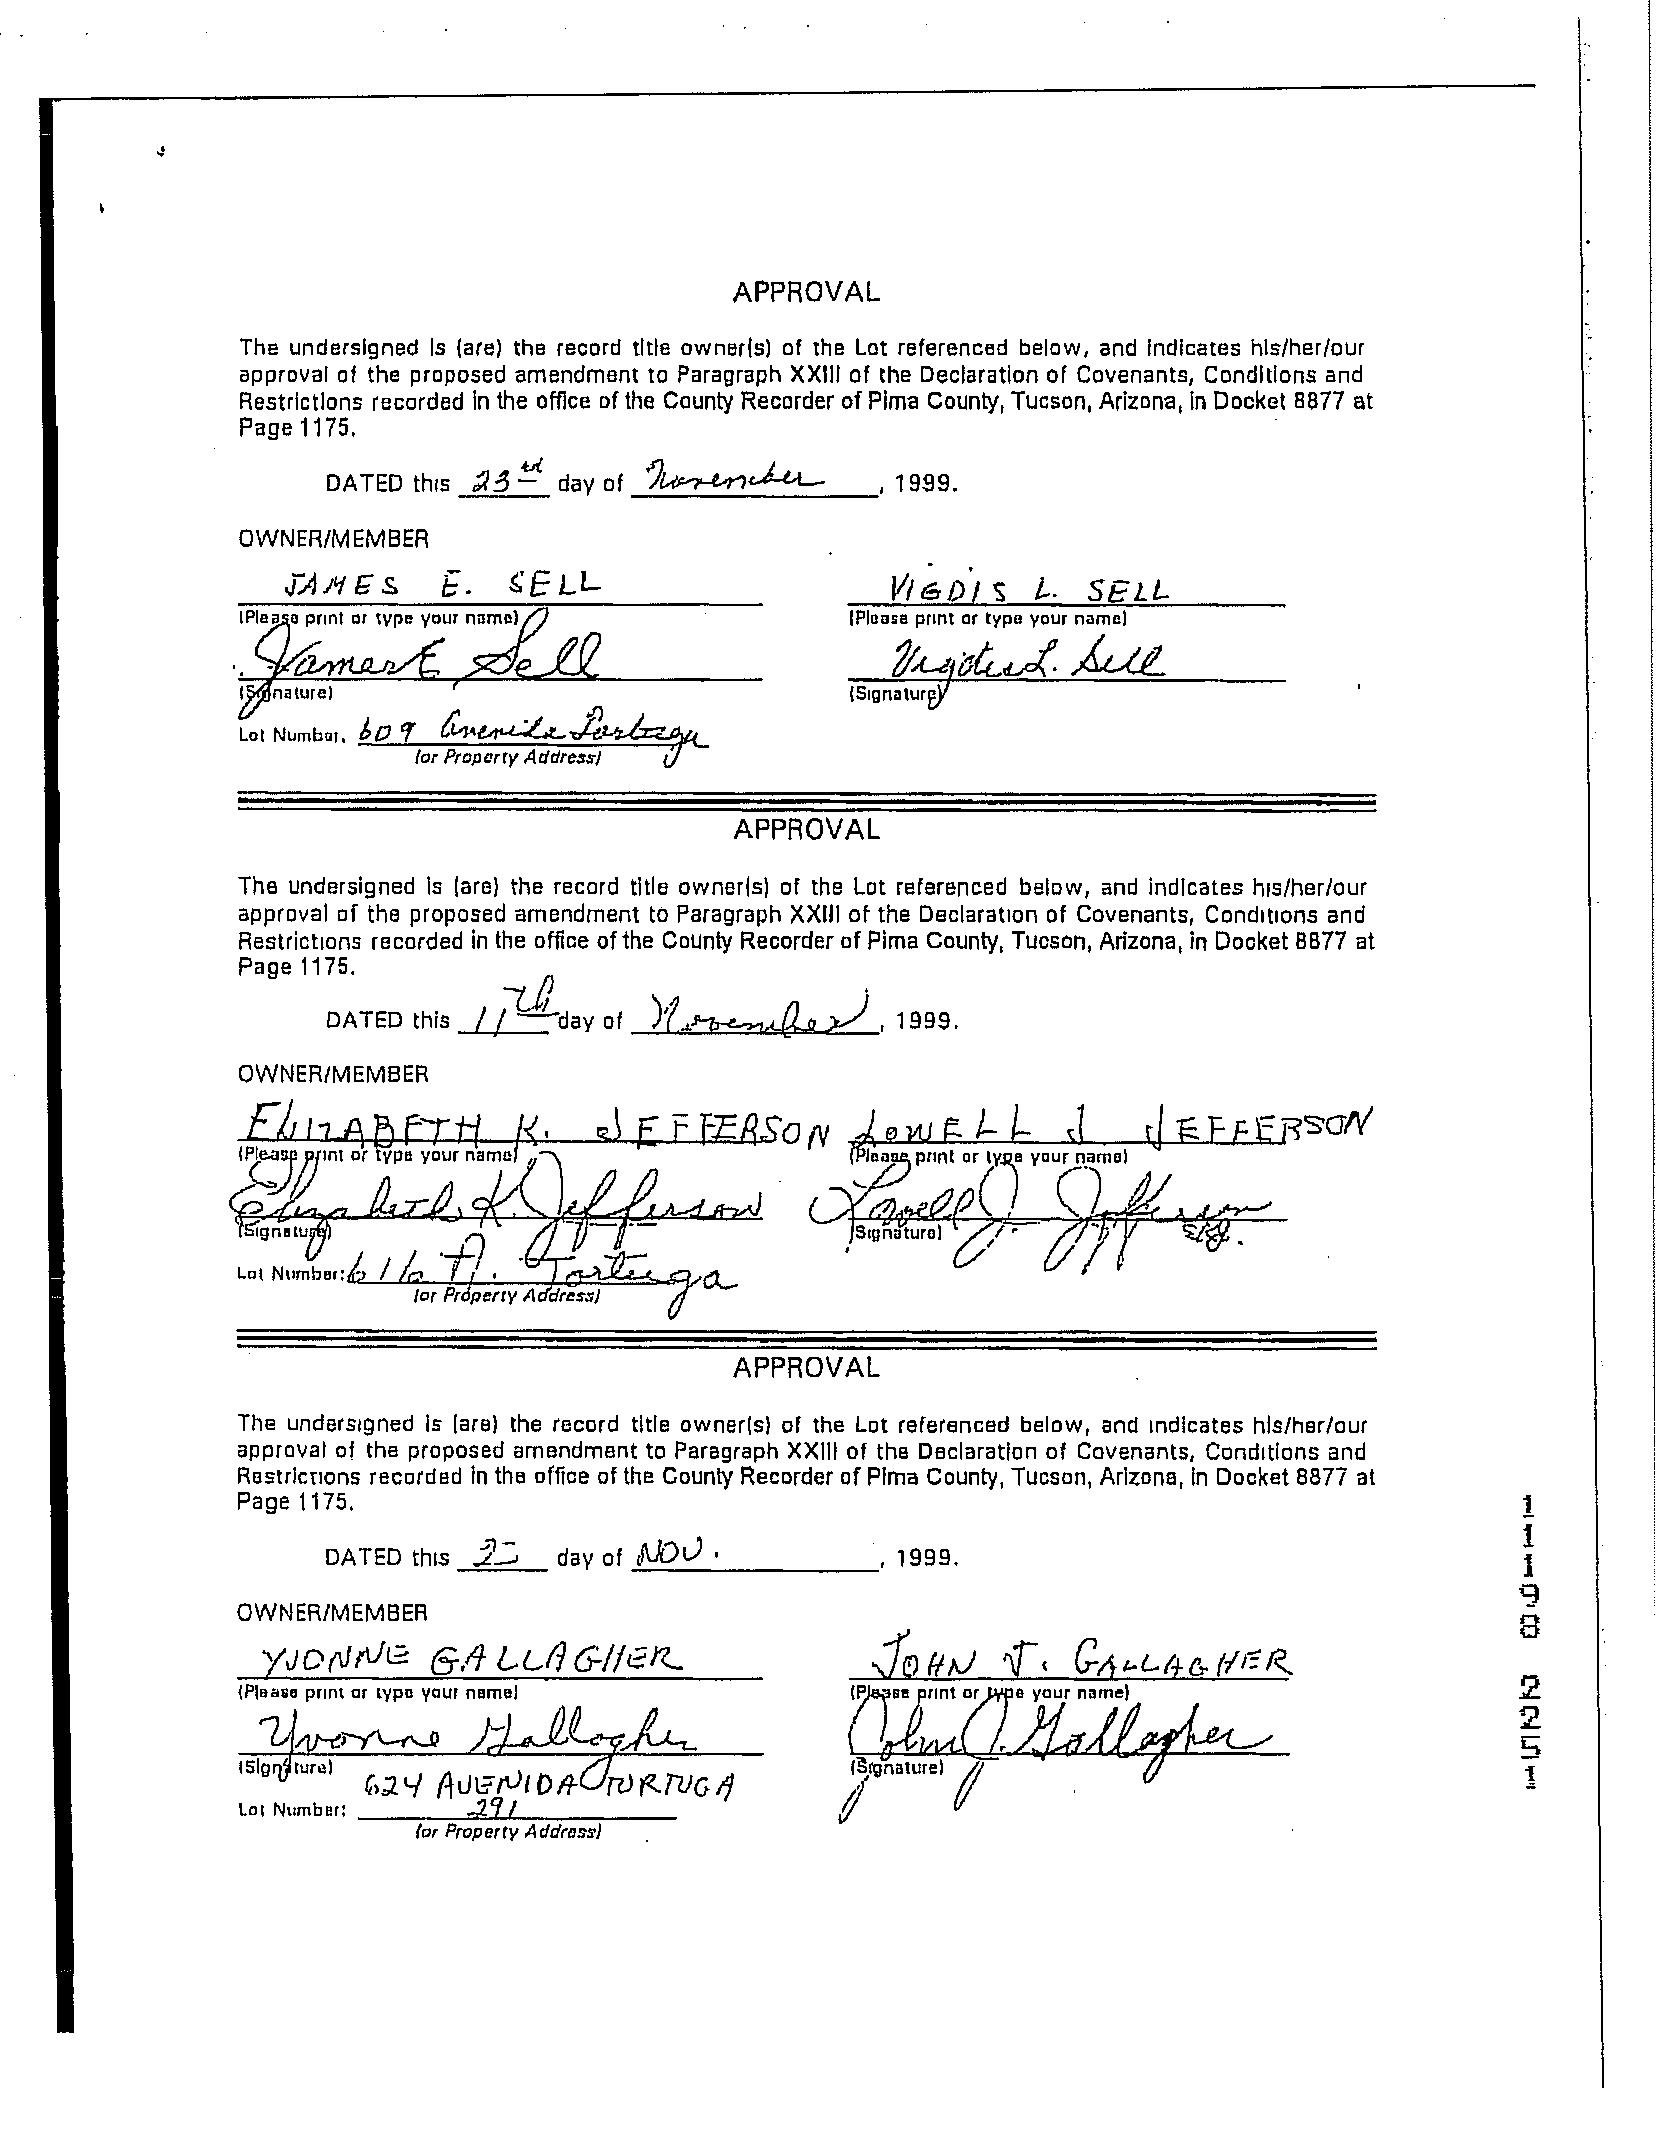 APPROVAL
The undersigned is (are) the record title owner(s) of the Lot referenced below, and indicates his/her/our
approval of the proposed amendment to Paragraph XXIII of the Declaration of Covenants, Conditions and
Restrictions recorded in the office of the County Recorder of Pima County, Tucson, Arizona, in Docket 8877 at
Page 1175.
DATED this 23rd day of November, 1999.
OWNER/MEMBER
JAMES E. SELL VIGDIS L. SELL
(Please print or type your name) (Please print or type your name)
James E Sell Vigdis L. Sell
(Signature) (Signature)
Lot Number: 609 Avenida Tortuga
(or Property Address)
APPROVAL
The undersigned is (are) the record title owner(s) of the Lot referenced below, and indicates his/her/our
approval of the proposed amendment to Paragraph XXIII of the Declaration of Covenants, Conditions and
Restrictions recorded in the office of the County Recorder of Pima County, Tucson, Arizona, in Docket 8877 at
Page 1175.
DATED this 11th day of November, 1999.
OWNER/MEMBER
ELIZABETH K. JEFFERSON LOWELL J JEFFERSON
(Please print or type your name) (Please print or type your name)
Elizabeth K. Jefferson Lowell J. Jefferson
(Signature) (Signature)
Lot Number: 616 A. Tortuga
(or Property Address)
APPROVAL
The undersigned is (are) the record title owner(s) of the Lot referenced below, and indicates his/her/our
approval of the proposed amendment to Paragraph XXIII of the Declaration of Covenants, Conditions and
Restrictions recorded in the office of the County Recorder of Pima County, Tucson, Arizona, in Docket 8877 at
Page 1175.
DATED this day of NOV. , 1999.
OWNER/MEMBER
YVONNE GALLAGHER JOHN J. GALLAGHER
(Please print or type your name) (Please print or type your name)
Yvonne Gallagher John J. Gallagher
(Signature) (Signature)
624 AVENIDA TORTUGA
Lot Number: 291
(or Property Address)
11198 2251